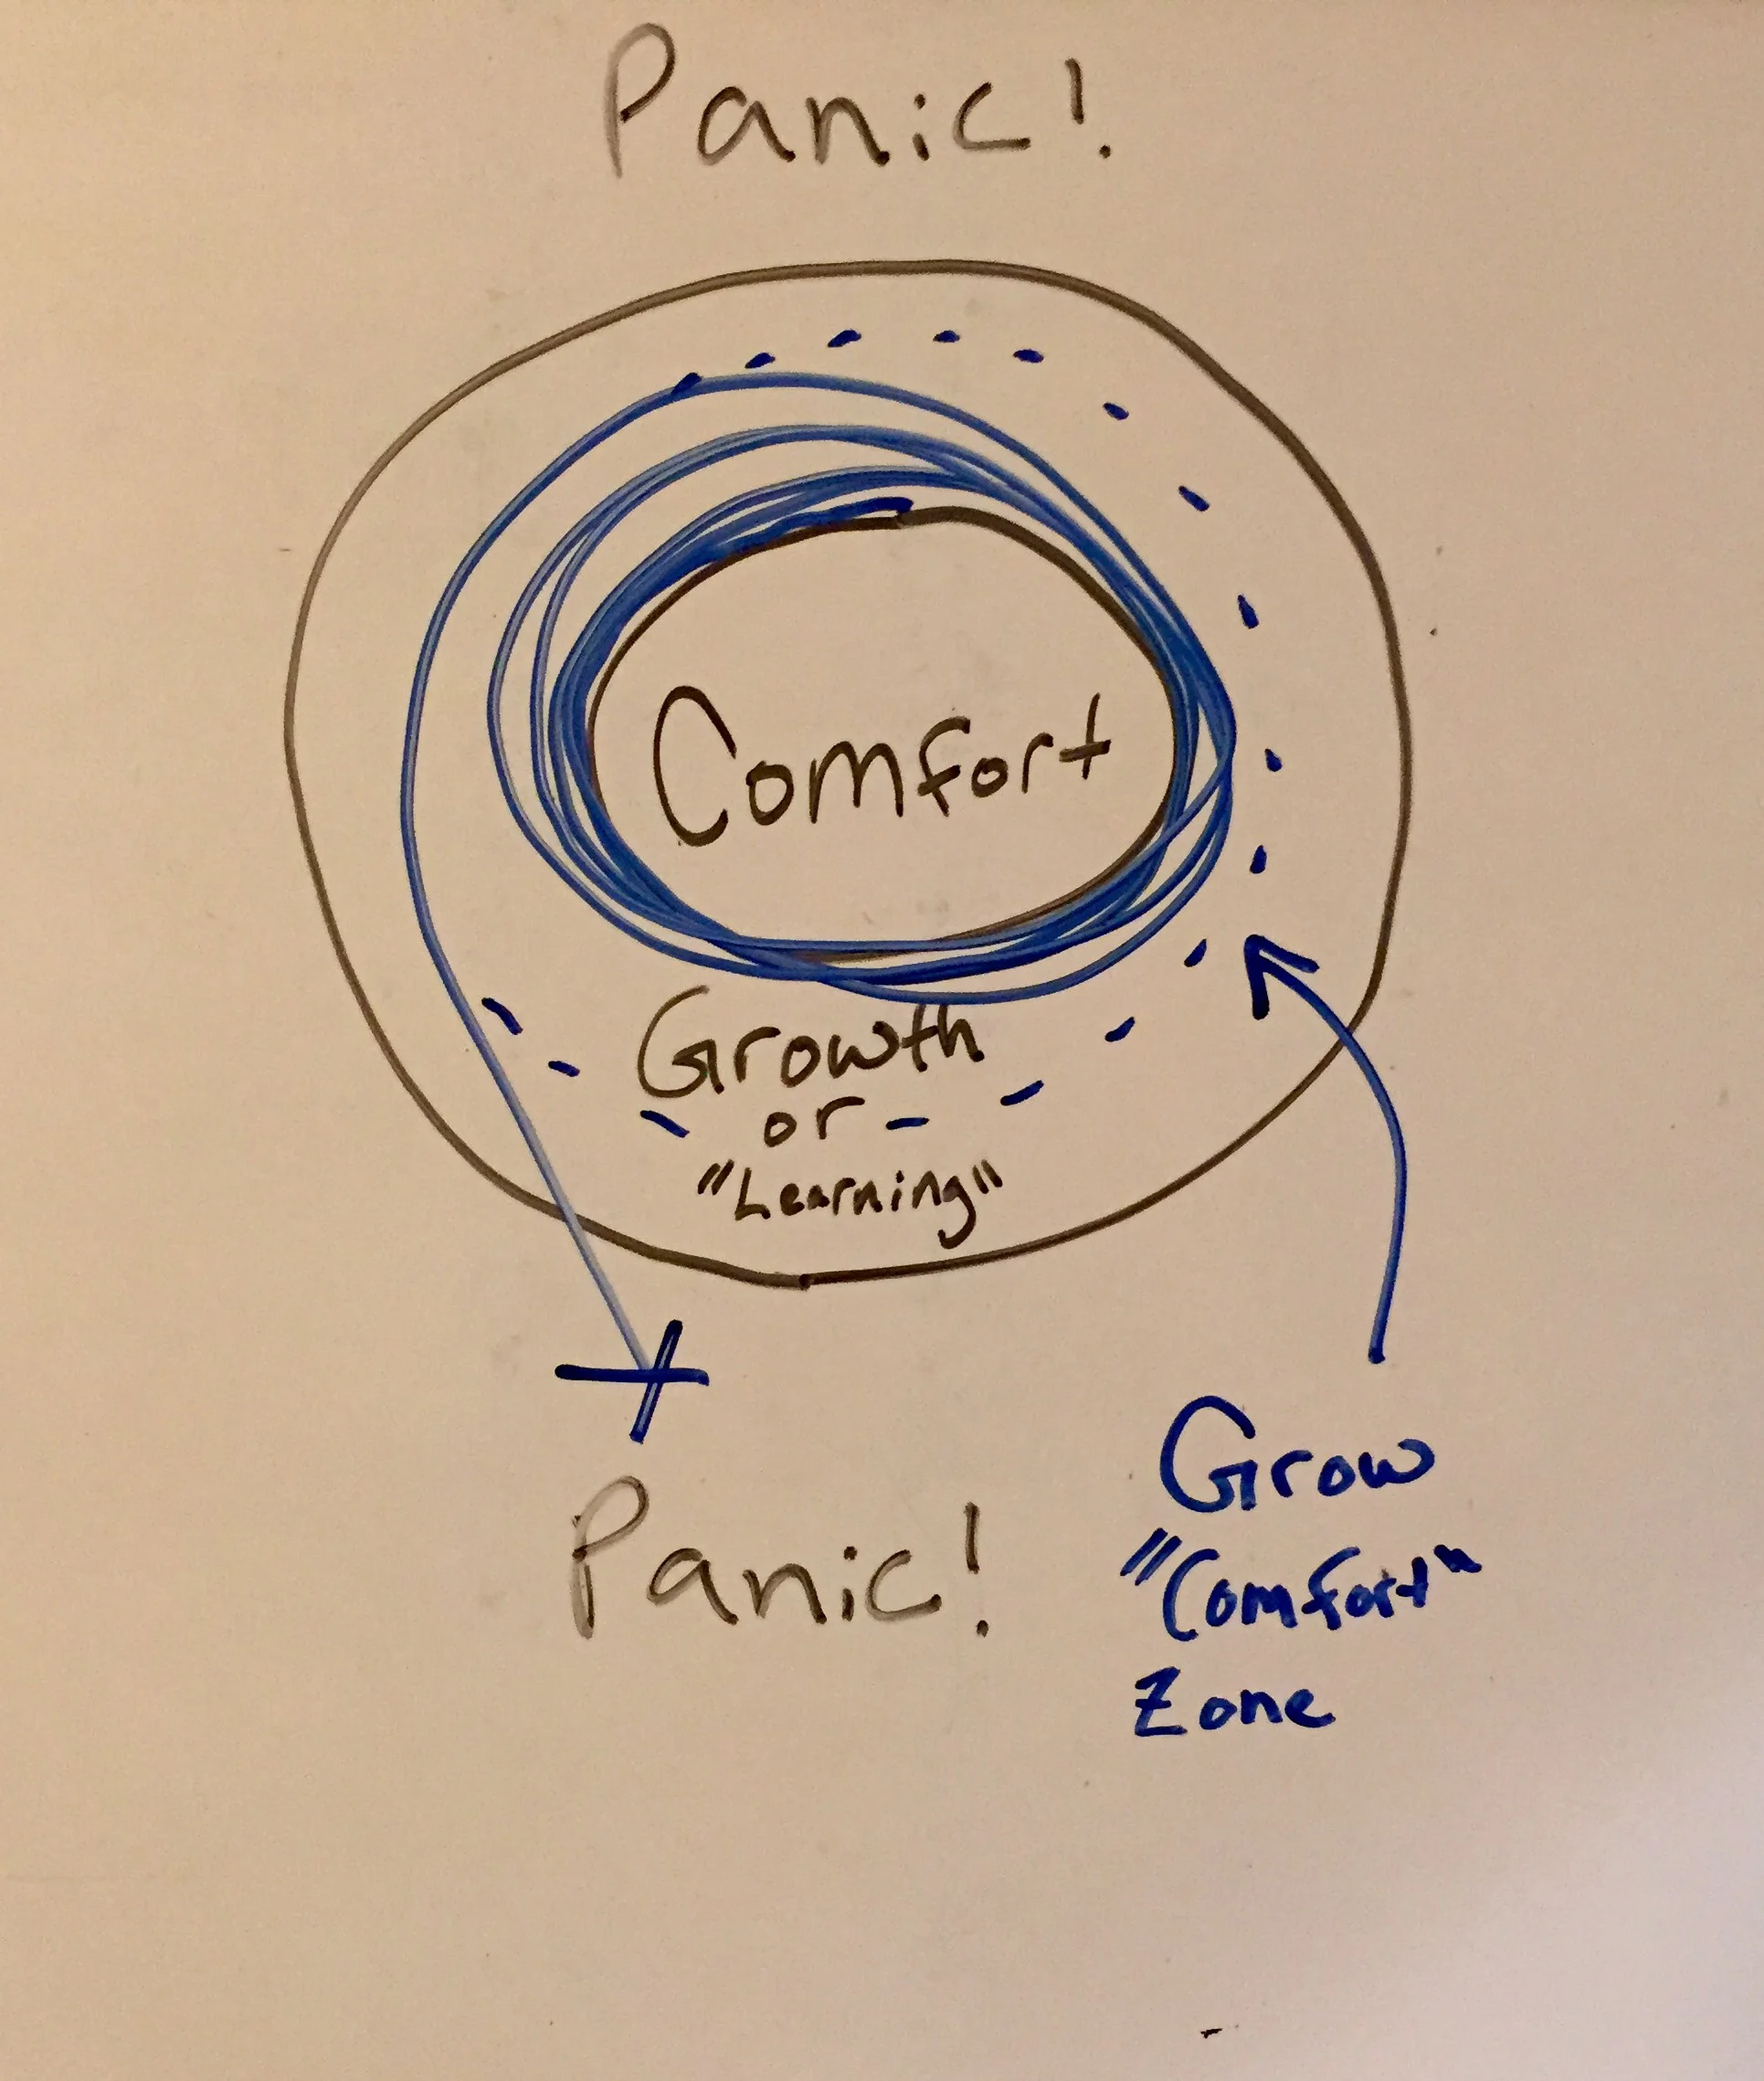 Panic!
Comfort
Growth
or
"Learning"
Panic!
Grow
"Comfort"
Zone